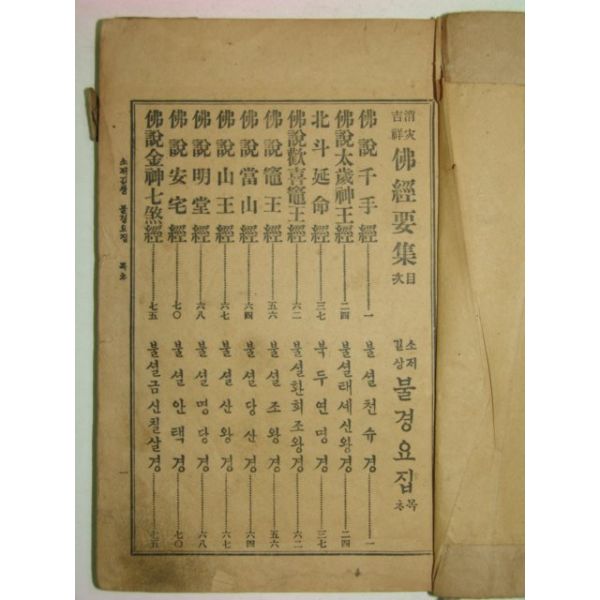 消災吉祥 佛經要集 目次
소재길상 불경요집 목차
佛說千手經 一
불셜천슈경 一
佛說太歲神王經 二四
불셜태셰신왕경 二四
北斗延命經 三七
북두연명경 三七
佛說歡喜竈王經 六二
불셜환희조왕경 六二
佛說竈王經 五六
불셜조왕경 五六
佛說當山經 六四
불셜당산경 六四
佛說山王經 六七
불셜산왕경 六七
佛說明堂經 六八
불셜명당경 六八
佛說安宅經 七〇
불셜안택경 七〇
佛說金神七煞經 七五
불셜금신칠살경 七五
소재길샹 불경요집 목차 一